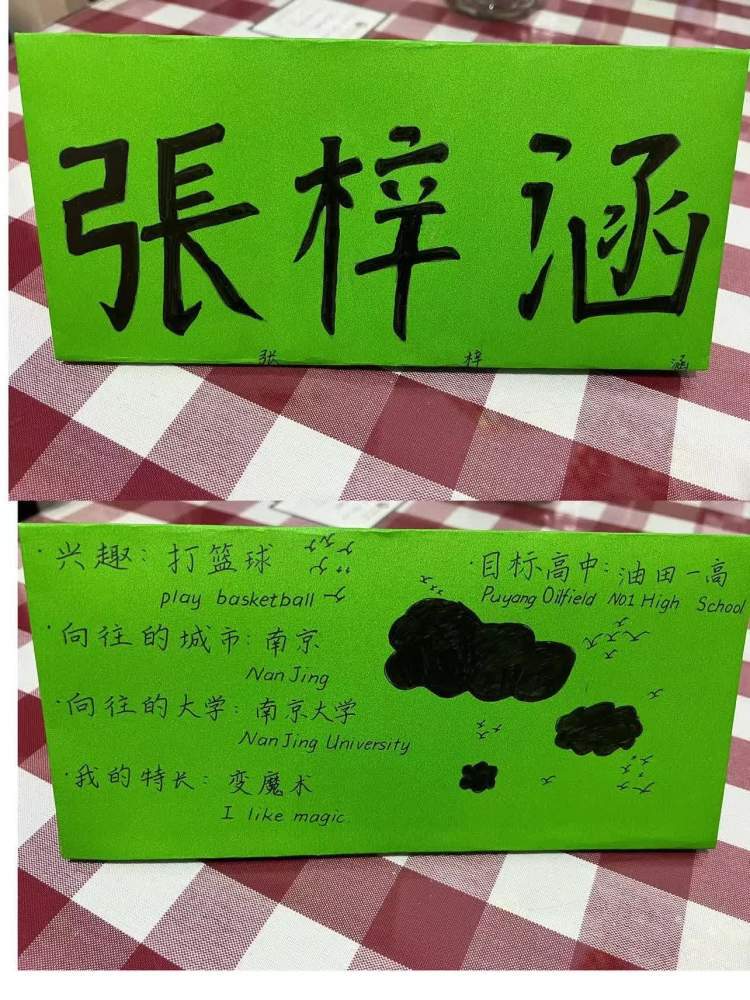 張梓涵
张 梓 涵
·兴趣：打篮球
play basketball
·向往的城市：南京
NanJing
·向往的大学：南京大学
NanJing University
·我的特长：变魔术
I like magic.
·目标高中：油田一高
Puyang Oilfield No1 High School